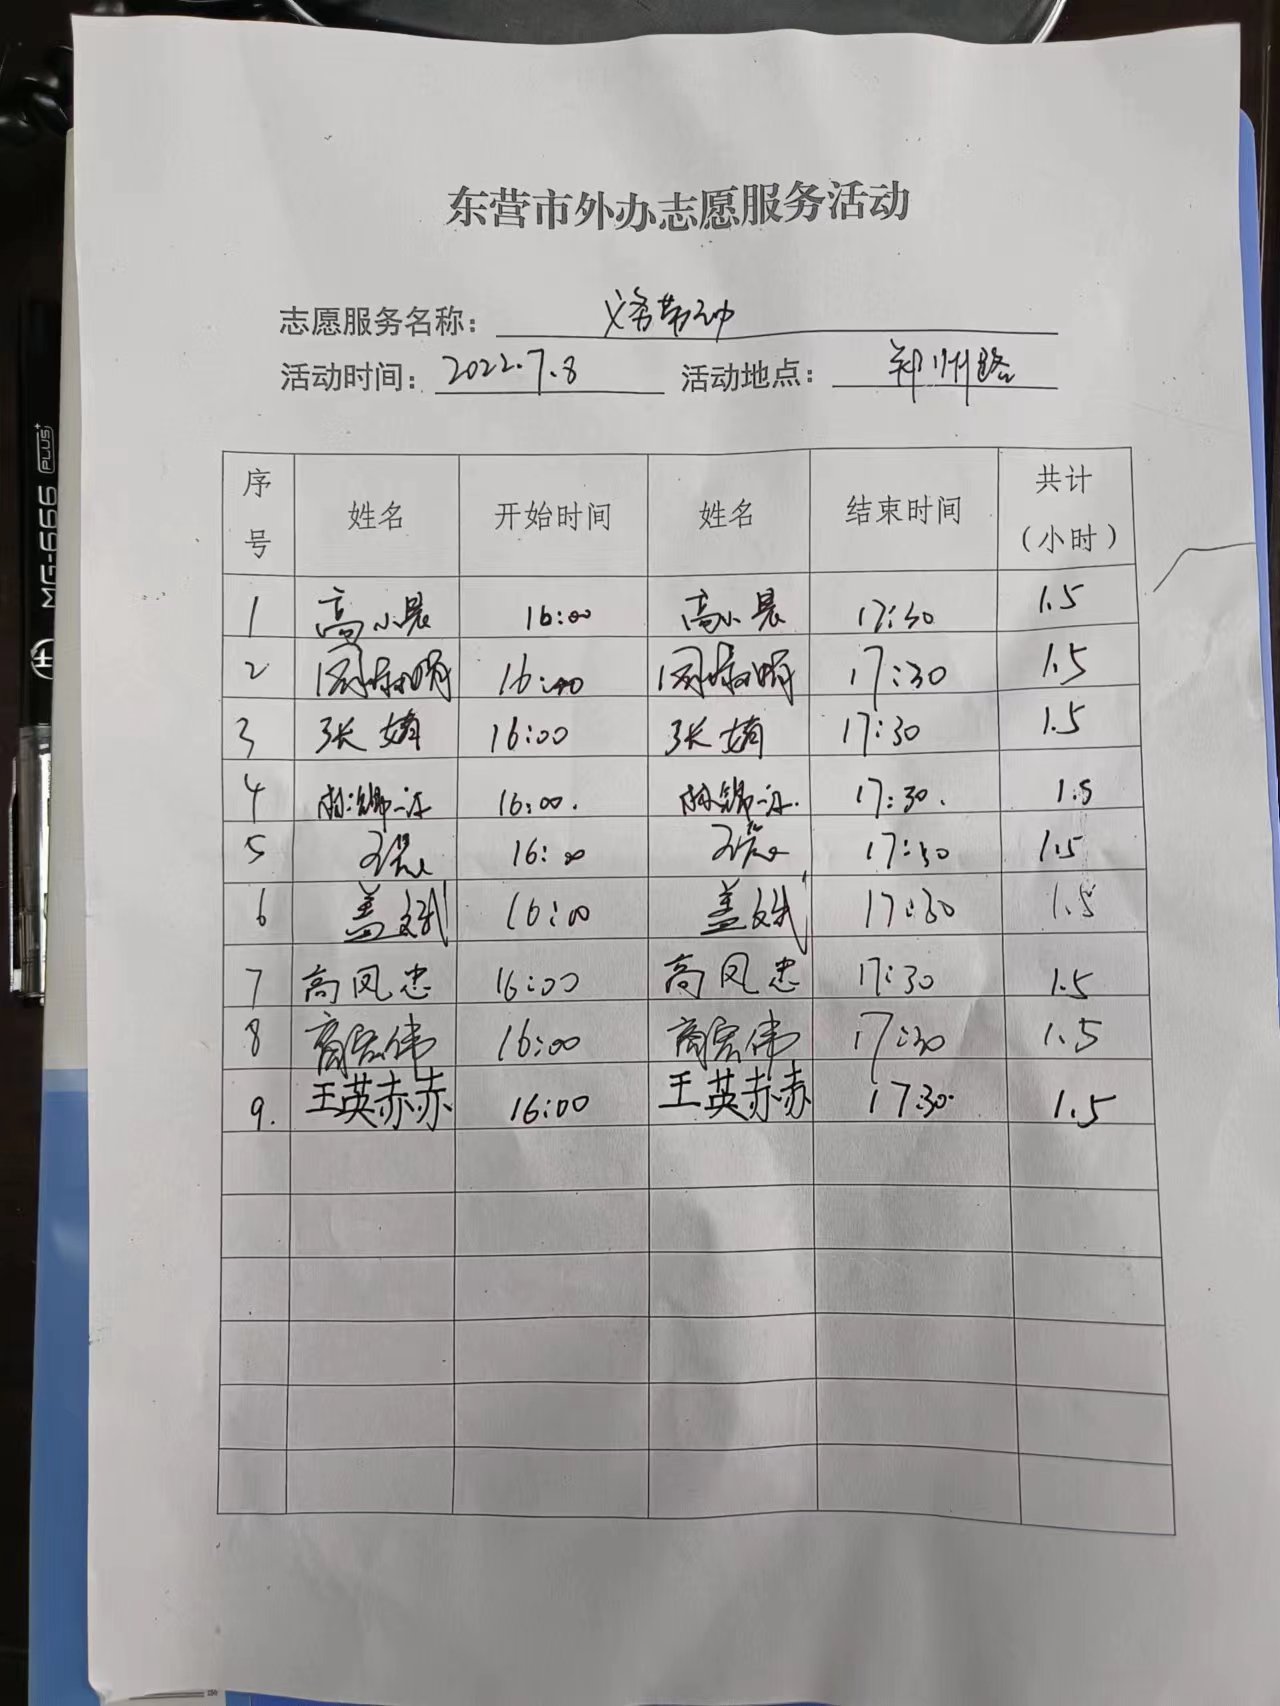 东营市外办志愿服务活动
志愿服务名称： 义务劳动
活动时间： 2022.7.8 活动地点： 郑州路
序号 姓名 开始时间 姓名 结束时间 共计（小时）
1 高小晨 16:00 高小晨 17:30 1.5
2 16:00 17:30 1.5
3 张婧 16:00 张婧 17:30 1.5
4 16:00. 17:30. 1.5
5 16:00 17:30 1.5
6 盖文斌 16:00 盖文斌 17:30 1.5
7 高凤忠 16:00 高凤忠 17:30 1.5
8 商宏伟 16:00 商宏伟 17:30 1.5
9. 王英赫 16:00 王英赫 17:30. 1.5
MG-666 PLUS+